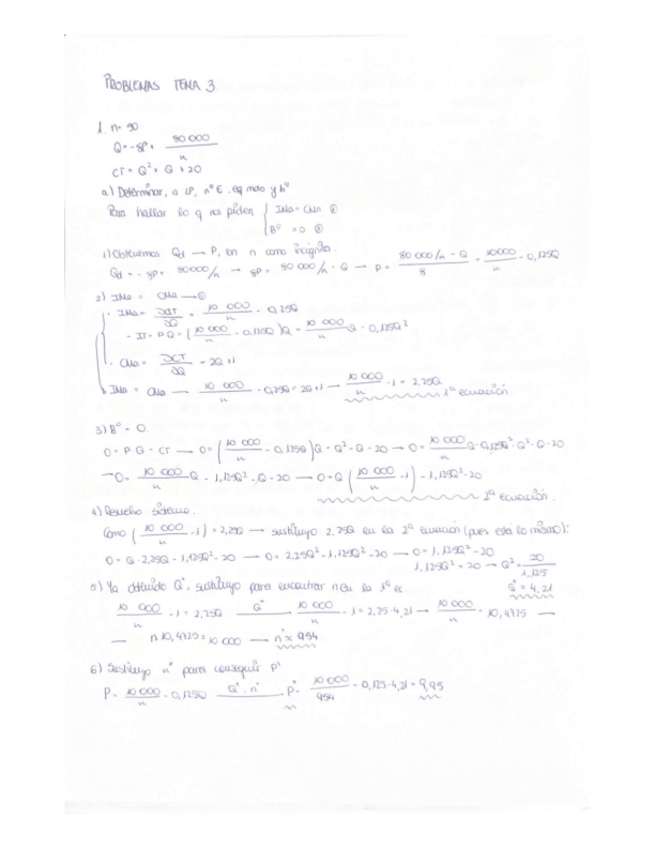 PROBLEMAS TEMA 3.
1. n= 90
Q= -8P + 80 000 / n
CT = Q² + Q + 20
a) Determinar, a LP, nº E, eq mdo y bº
Para hallar lo q nos piden { IMa = CMa ①
Bº = 0 ②
1) Obtenemos Qd → P, con n como incógnita.
Qd = -8P + 80000/n → 8P = 80 000/n - Q → P = 80 000/n - Q / 8 = 10000 / n - 0,125Q
2) IMa = CMa → ①
· IMa = ∂IT / ∂Q = 10 000 / n - 0,25Q
- IT = P·Q = (10 000 / n - 0,125Q)Q = 10 000 / n Q - 0,125Q²
· CMa = ∂CT / ∂Q = 2Q+1
IMa = CMa → 10 000 / n - 0,25Q = 2Q+1 → 10 000 / n - 1 = 2,25Q 1ª ecuación.
3) Bº = 0.
0 = P·Q - CT → 0 = (10 000 / n - 0,125Q)Q - Q² - Q - 20 → 0 = 10 000 / n Q - 0,125Q² - Q² - Q - 20
→ 0 = 10 000 / n Q - 1,125Q² - Q - 20 → 0 = Q (10 000 / n - 1) - 1,125Q² - 20
2ª ecuación.
4) Resuelvo sistema.
Como (10 000 / n - 1) = 2,25Q → sustituyo 2,25Q en la 2ª ecuación (pues es lo mismo):
0 = Q · 2,25Q - 1,125Q² - 20 → 0 = 2,25Q² - 1,125Q² - 20 → 0 = 1,125Q² - 20
1,125Q² = 20 → Q² = 20 / 1,125
Q* = 4,21
5) Ya obtenido Q*, sustituyo para encontrar n en la 1ª ec.
10 000 / n - 1 = 2,25Q Q* → 10 000 / n - 1 = 2,25·4,21 → 10 000 / n = 10,4725 →
→ n 10,4725 = 10 000 → n* ≈ 954
6) Sustituyo n* para conseguir P*
P = 10 000 / n - 0,125Q Q*, n* → P* = 10 000 / 954 - 0,125·4,21 = 9,95